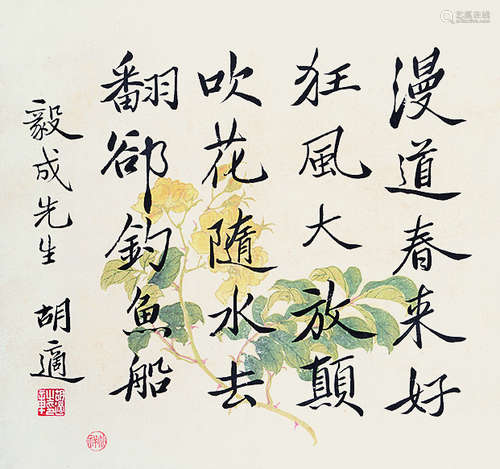 漫道春来好
狂風大放顛
吹花隨水去
翻卻釣魚船
毅成先生
胡適